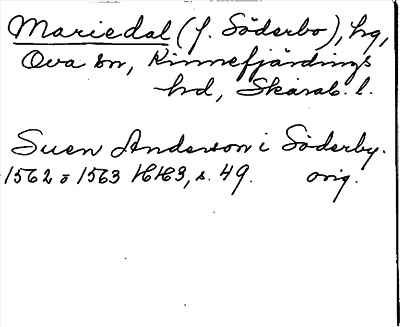 Mariedal (f. Söderbo), hg,
Ova sn, Kinnefjärdings
hd, Skarab. l.
Suen Anderson i Söderby.
1562 o 1563 HH3, s. 49. orig.